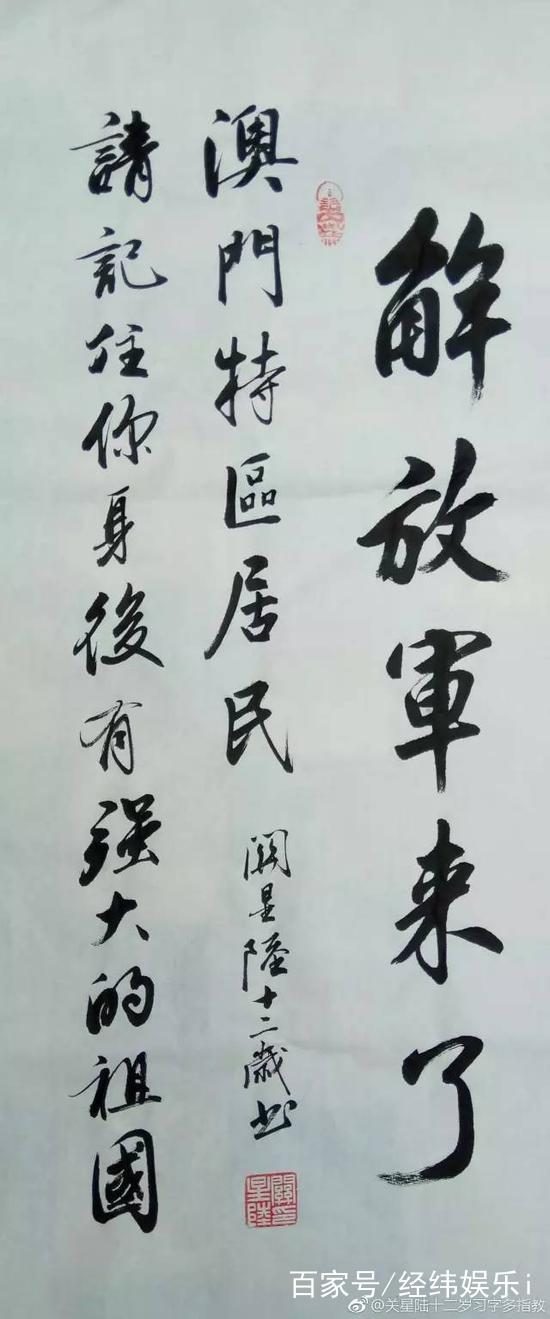 解放軍来了
澳門特區居民
請記住你身後有强大的祖國
關星陸十二歲书
關印星陸
百家号/经纬娱乐i
@关星陆十二岁习字多指教